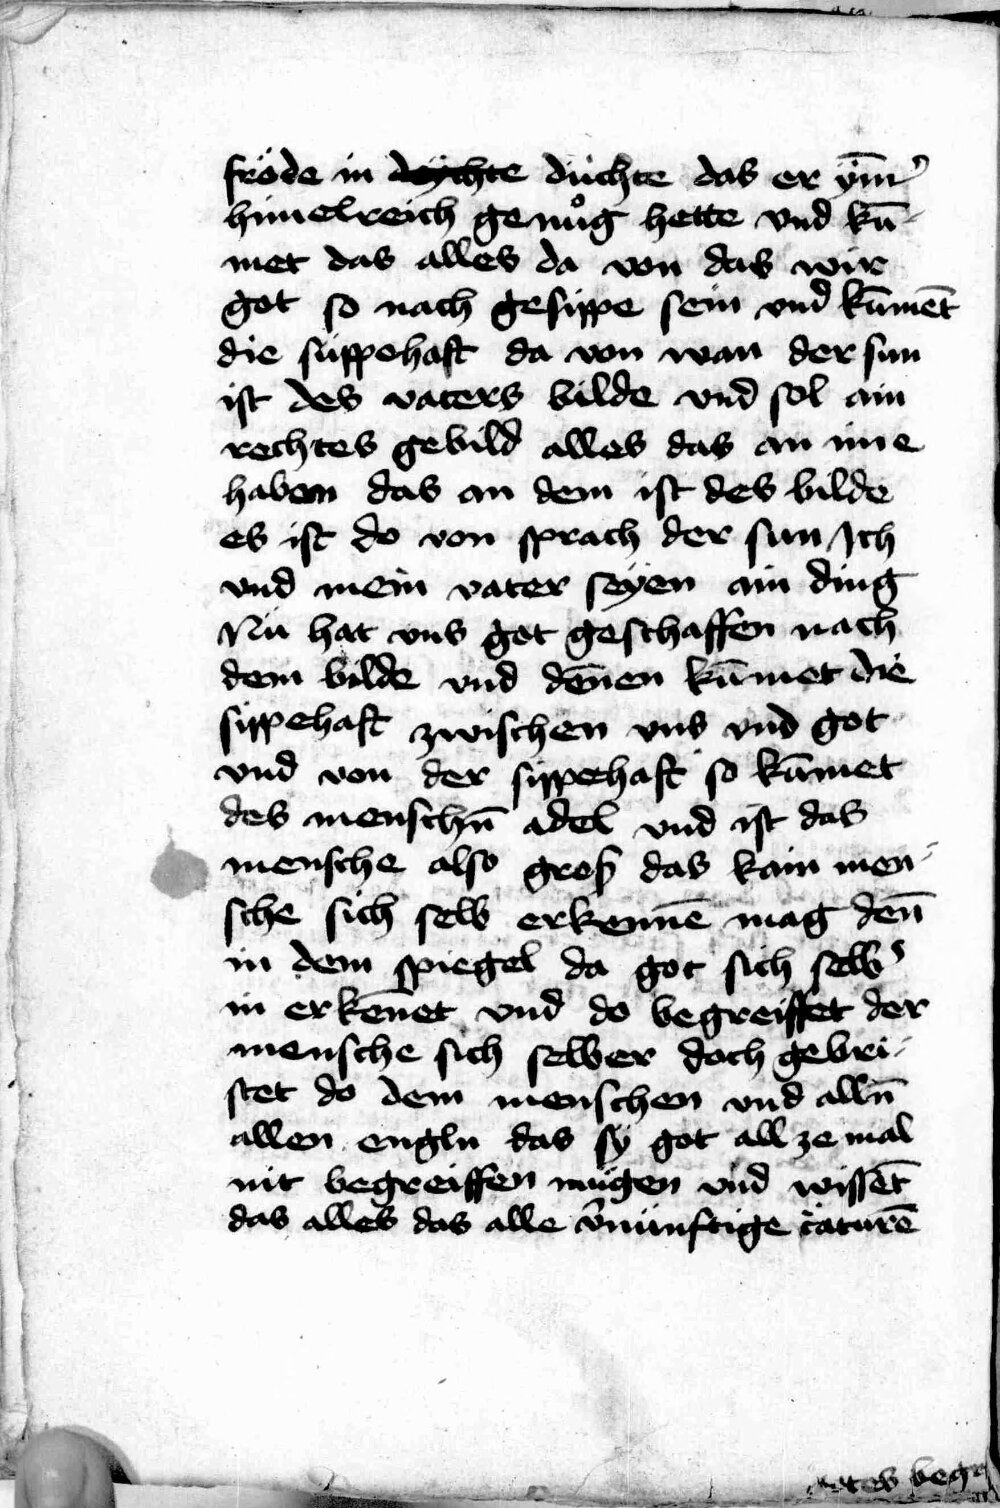 fröde in deychte düchte das er ym̄
himelreich genůg hette vnd kū-
met das alles da von das wir
got so nach gesippe sein vnd kūmēt
die sippehaft da von wan der sun
ist des vaters bilde vnd sol ain
rechtes gebild alles das an ime
haben das an dem ist des bilde
es ist do von sprach der sun Ich
vnd mein vater seyen ain ding
Nu hat vns got geschaffen nach
dem bilde vnd dēnen kūmet die
sippehaft zwischen vns vnd got
vnd von der sippehaft so kūmet
des menschn̄ adel vnd ist das
mensche also groß das kain men-
sche sich selb erkennē mag den̄
in dem spiegel da got sich selbs
in erkēnet vnd do begreiffet der
mensche sich selber doch gebri-
stet do dem menschen vnd alln̄
allen engln das sy got all ze mal
nit begreiffen mügen vnd wissēt
das alles das alle v̄nünftige c̄aturē